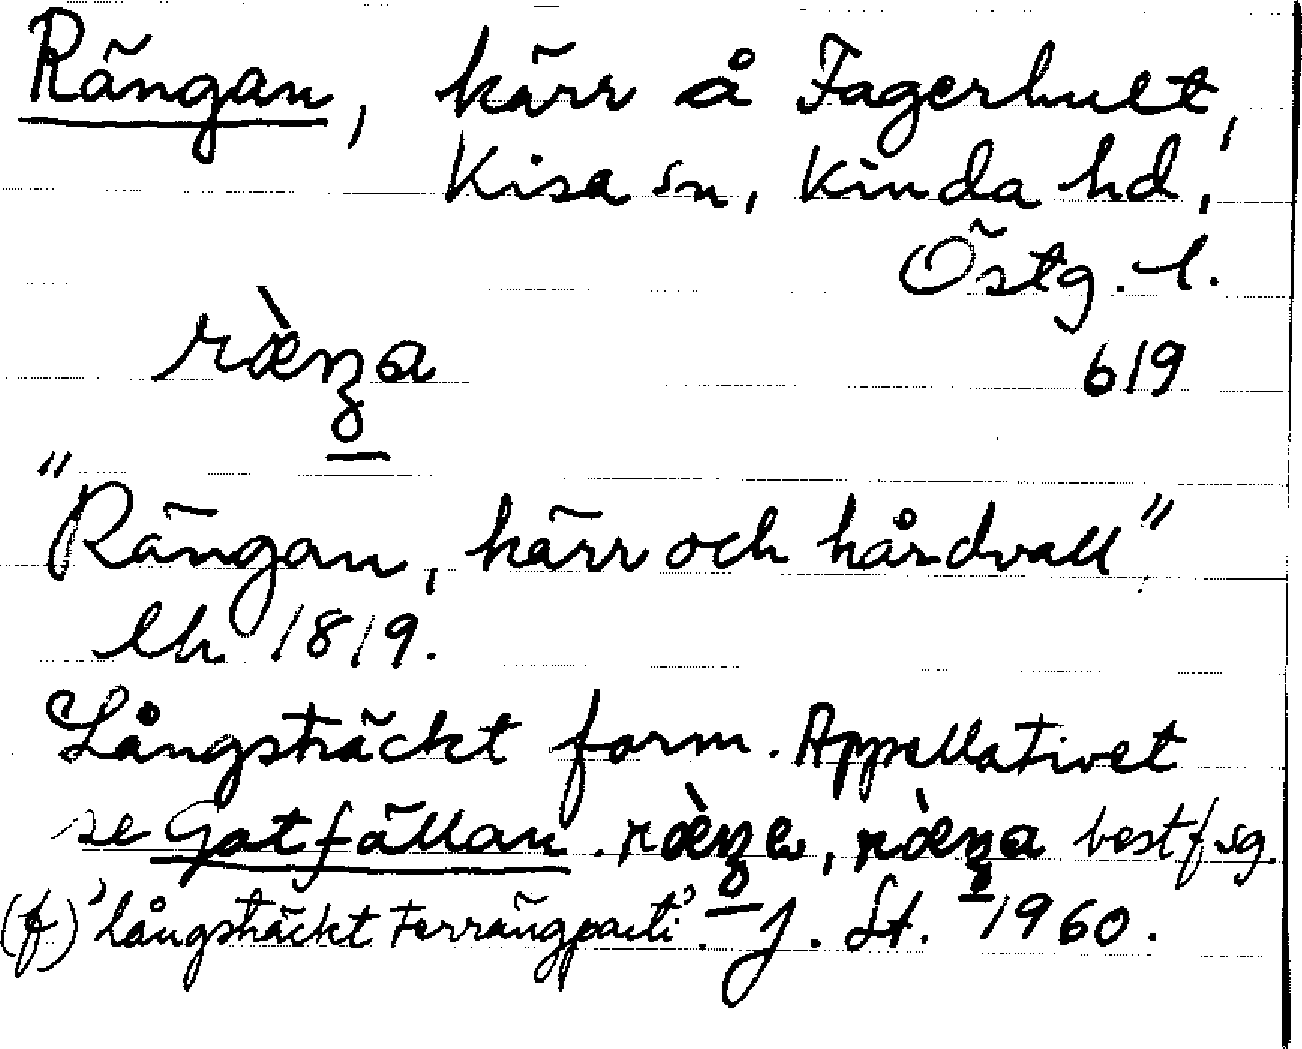 Rängan, kärr å Fagerhult,
Kisa sn, Kinda hd,
Östg. l.
619
ræ̀ŋa
"Rängan, kärr och hårdvall"
lh 1819.
Långsträckt form. Appellativet
se Gatfällan. ræ̀ŋə, ræ̀ŋa best f sg.
(f) 'långsträckt terrängparti'. J. St. 1960.